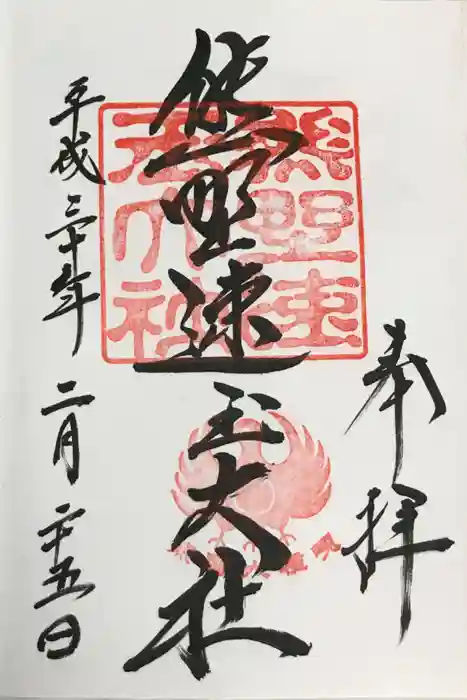 奉拝
熊野速玉大社
熊野速
玉大社
平成三十年二月二十五日